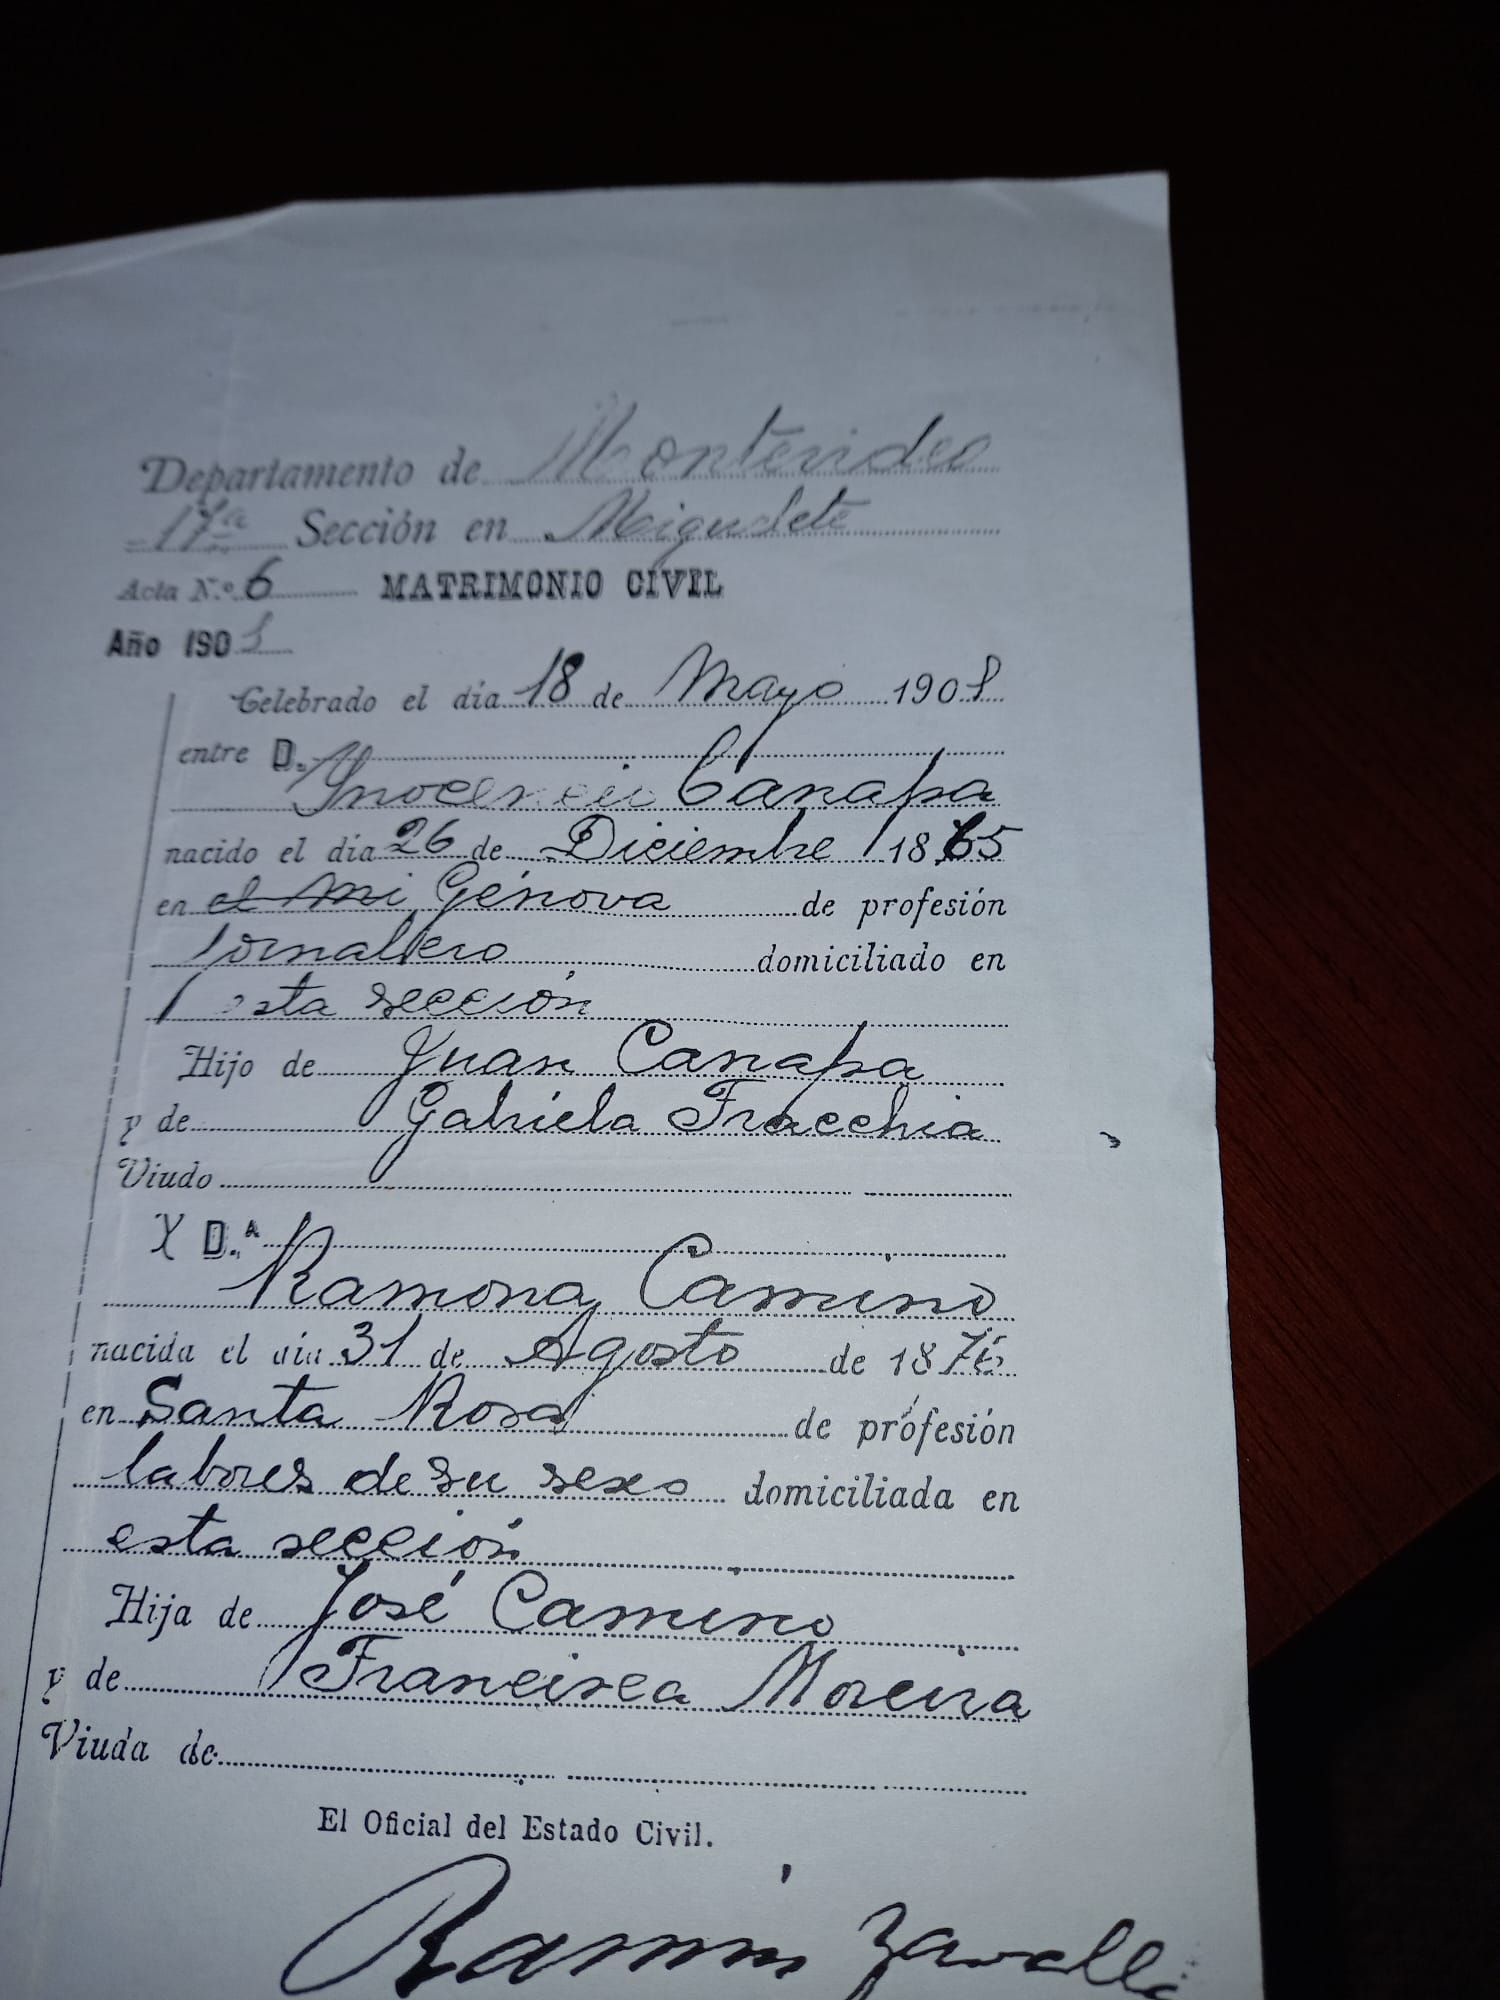 Departamento de Montevideo
17ª Sección en Miguelete
Acta N.º 6 MATRIMONIO CIVIL
Año 190
Celebrado el día 18 de Mayo 190
entre D.
Inocencio Canapa
nacido el día 26 de Diciembre 1865
en el Mi Génova de profesión
Jornalero domiciliado en
esta sección
Hijo de Juan Canapa
y de Gabriela Fracchia
Viudo
Y D.ᴬ
Ramona Camino
nacida el día 31 de Agosto de 1876
en Santa Rosa de profesión
labores de su sexo domiciliada en
esta sección
Hija de José Camino
y de Francisca Moreira
Viuda de
El Oficial del Estado Civil.
Ramón